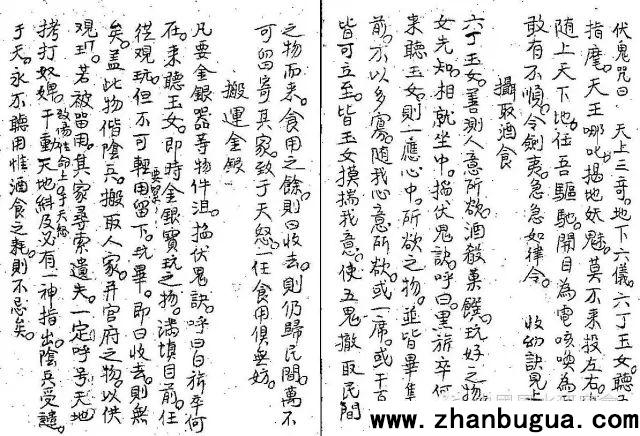 伏鬼咒曰　天上三奇。地下六儀。六丁玉女。聽
指麾。天王哪叱。揭地妖魁。莫不来投左右。
随上天下地。往吾驅馳。開目為電。咳唤為
敢有不順。令劍夷。急急如律令。　收𠡠訣見上
攝取酒食
六丁玉女。善測人意所欲。酒殺菓饌。玩好之物
女先知。相就坐中。搯伏鬼訣。呼曰黑旂卒何
来聽玉女。則一應心中。所欲之物。並皆畢集
前。不以多寡。随我心意所欲。或一席。或千百
皆可立至。皆玉女摸揣我意。使五鬼撤取民間
之物而来。食用之餘。則曰收去。則仍歸民間。萬不
可留寄其家。致于天怒。一任食用俱無妨。
搬運金銀
凡要金銀器等物件。沮。搯伏鬼訣。呼曰白旂卒何
在。来聽玉女。要器。即時金銀寶玩之物。滿填目前。任
從观玩。但不可輕用留下。玩畢。即曰收去。則無
矣。盖此物偕陰兵。搬取人家。并官府之物。以供
观玩。若被留用。其家尋索遺失。一定呼号天地
拷打奴婢。致傷性命。上干天怒。干動天地糾及。必有一神指出。陰兵受譴
于天。永不聽用。惟酒食之耗。則不忌矣。
www.zhanbugua.com